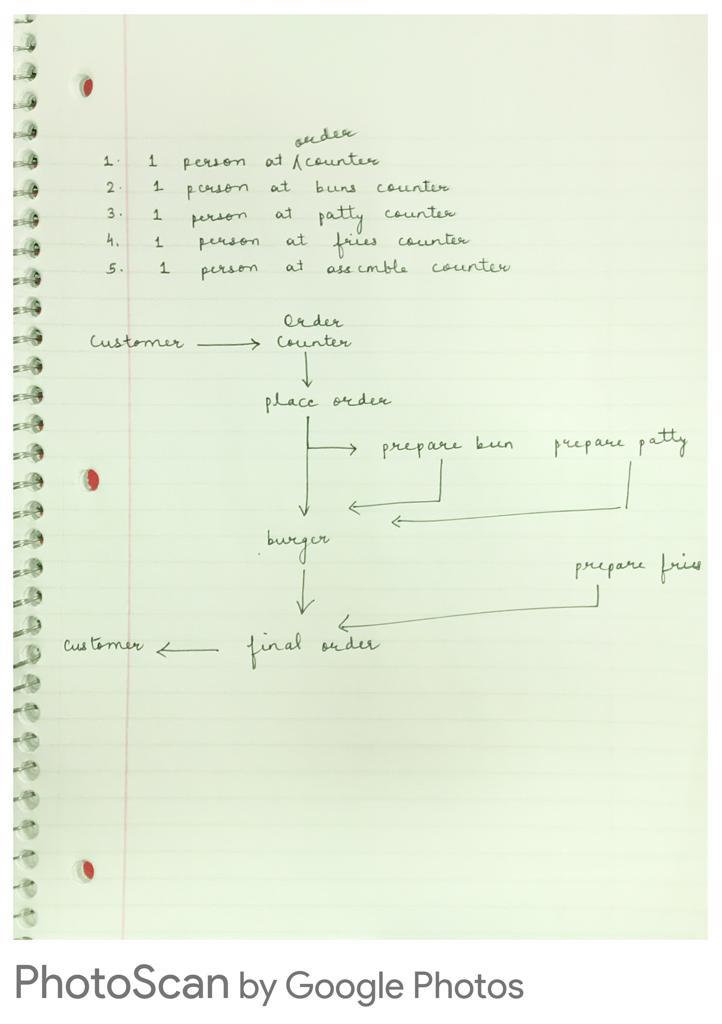 order
1. 1 person at ∧ counter
2. 1 person at buns counter
3. 1 person at patty counter
4. 1 person at fries counter
5. 1 person at assemble counter
Order
Customer → counter
place order
prepare bun prepare patty
burger
prepare fries
customer ← final order
PhotoScan by Google Photos